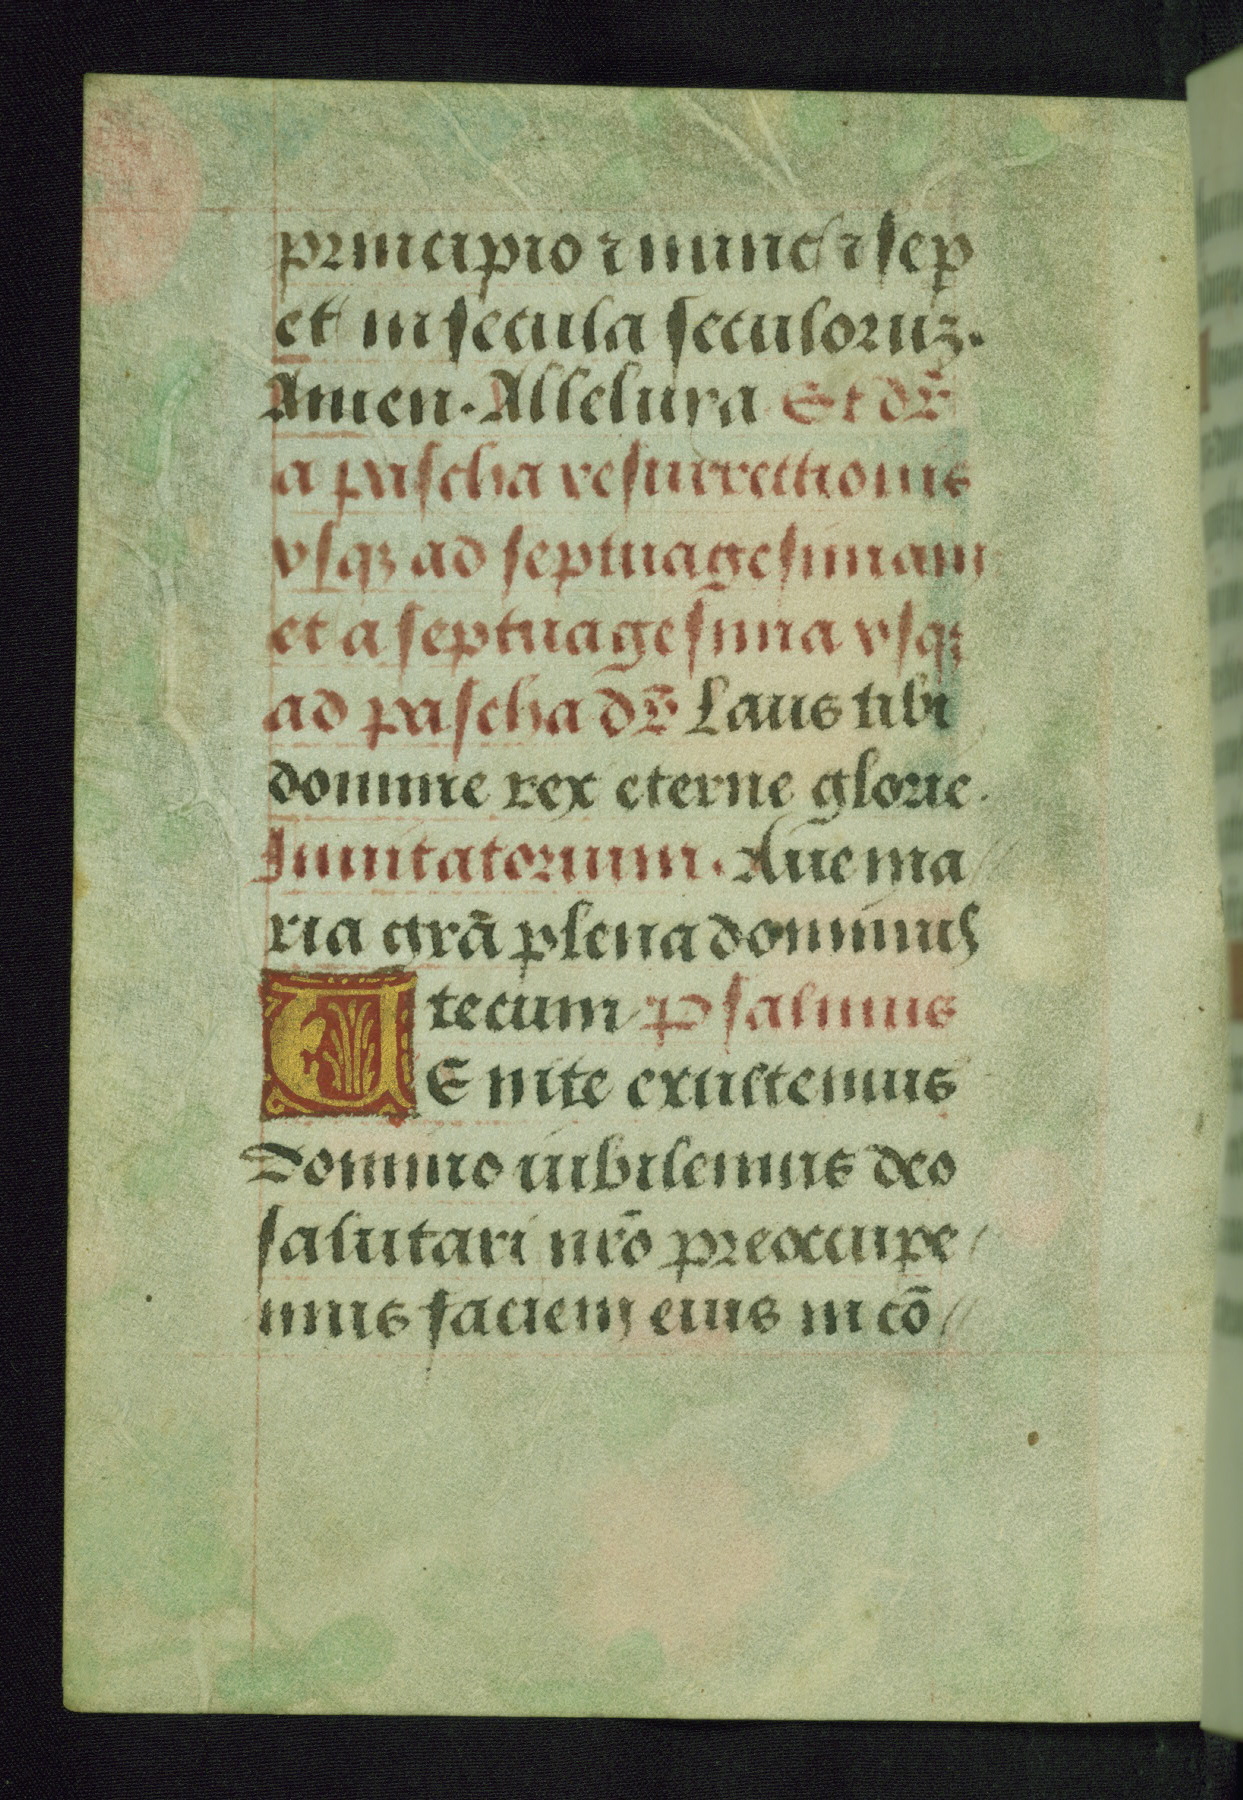 principio ⁊ nunc ⁊ sep
et in secula seculoruz.
Amen. Alleluya Et dr̄
a pascha resurrectionis
vsqz ad septuagesimam
et a septuagesima vsqz
ad pascha dr̄ Laus tibi
domine rex eterne glorie.
Inuitatorium. Aue ma
ria grā plena dominus
tecum Psalmus
VEnite exultemus
Domino iubilemus deo
salutari nrō preoccupe
mus faciem eius in cō